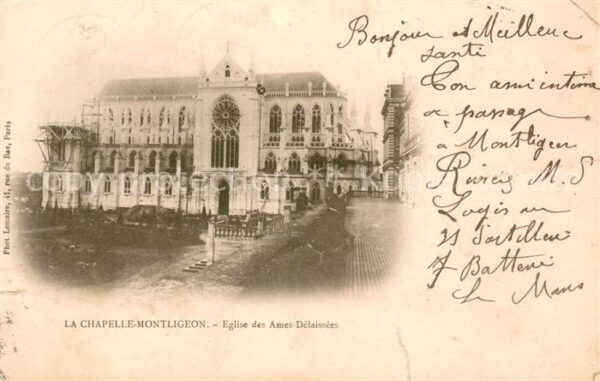 Bonjour et Meilleure
santé
Ton ami intime
de passage
a Montligeon
Logis au
31 d'artillerie
7 Batterie
Le Mans
Phot Lemaire, 41, rue du Bac, Paris
LA CHAPELLE-MONTLIGEON. - Eglise des Ames-Délaissées